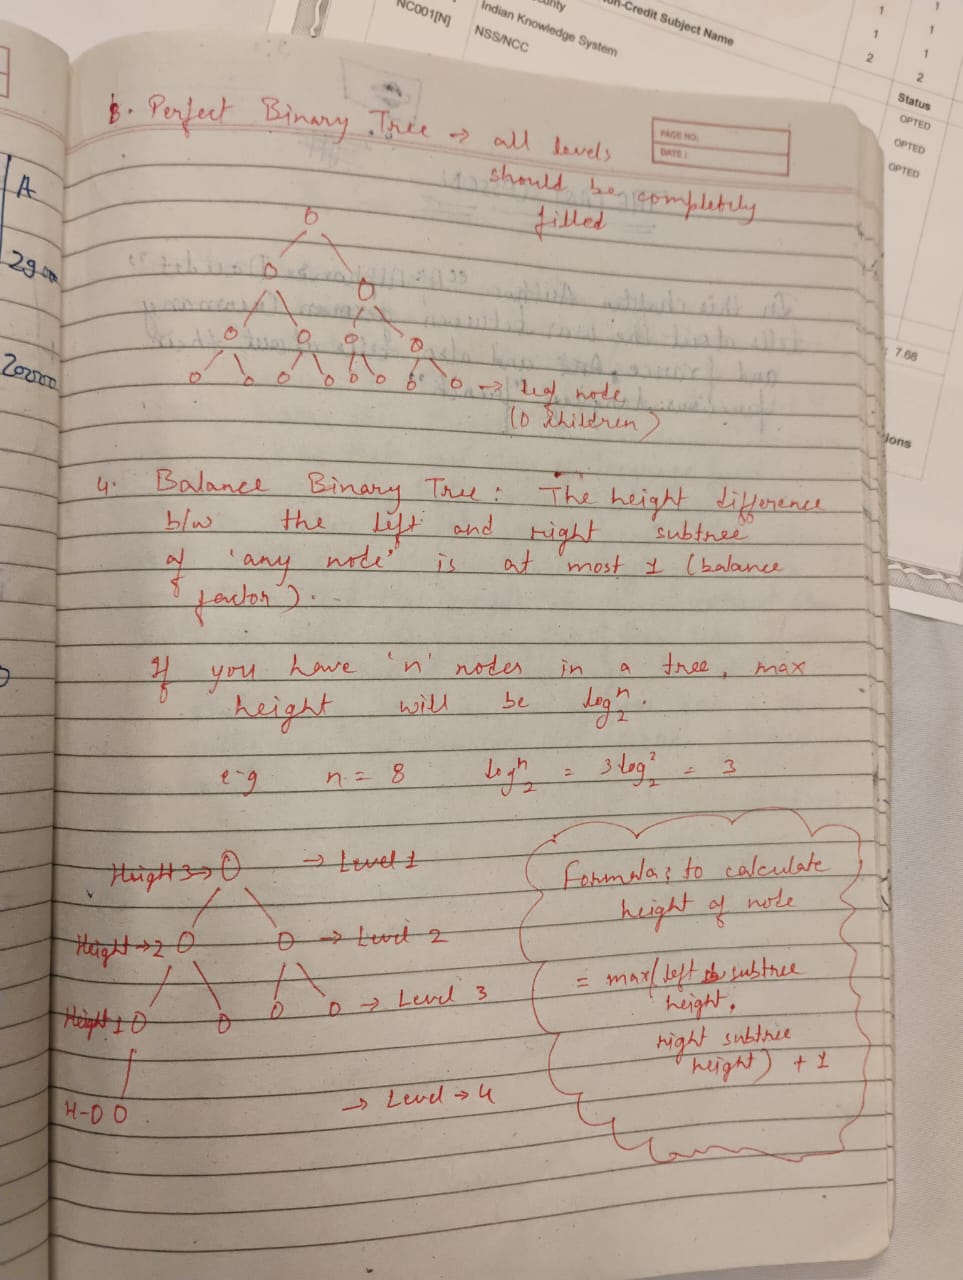 NC001[N]
Indian Knowledge System
NSS/NCC
n-Credit Subject Name
1
1
2
1
1
2
Status
OPTED
OPTED
OPTED
7.68
ions
A
2900
20000
PAGE NO:
DATE:
3. Perfect Binary Tree → all levels
should be completely
filled
→ leaf node
(0 children)
4. Balance Binary Tree: The height difference
b/w the left and right subtree
of 'any node' is at most 1 (balance
factor).
If you have 'n' nodes in a tree, max
height will be log₂ⁿ.
e-g n = 8 log₂ⁿ = 3 log₂² = 3
Height 3→ → Level 1
Height →2 → Level 2
Height 1 → Level 3
H-0 → Level → 4
Formula: to calculate
height of node
= max(left subtree
height,
right subtree
height) + 1